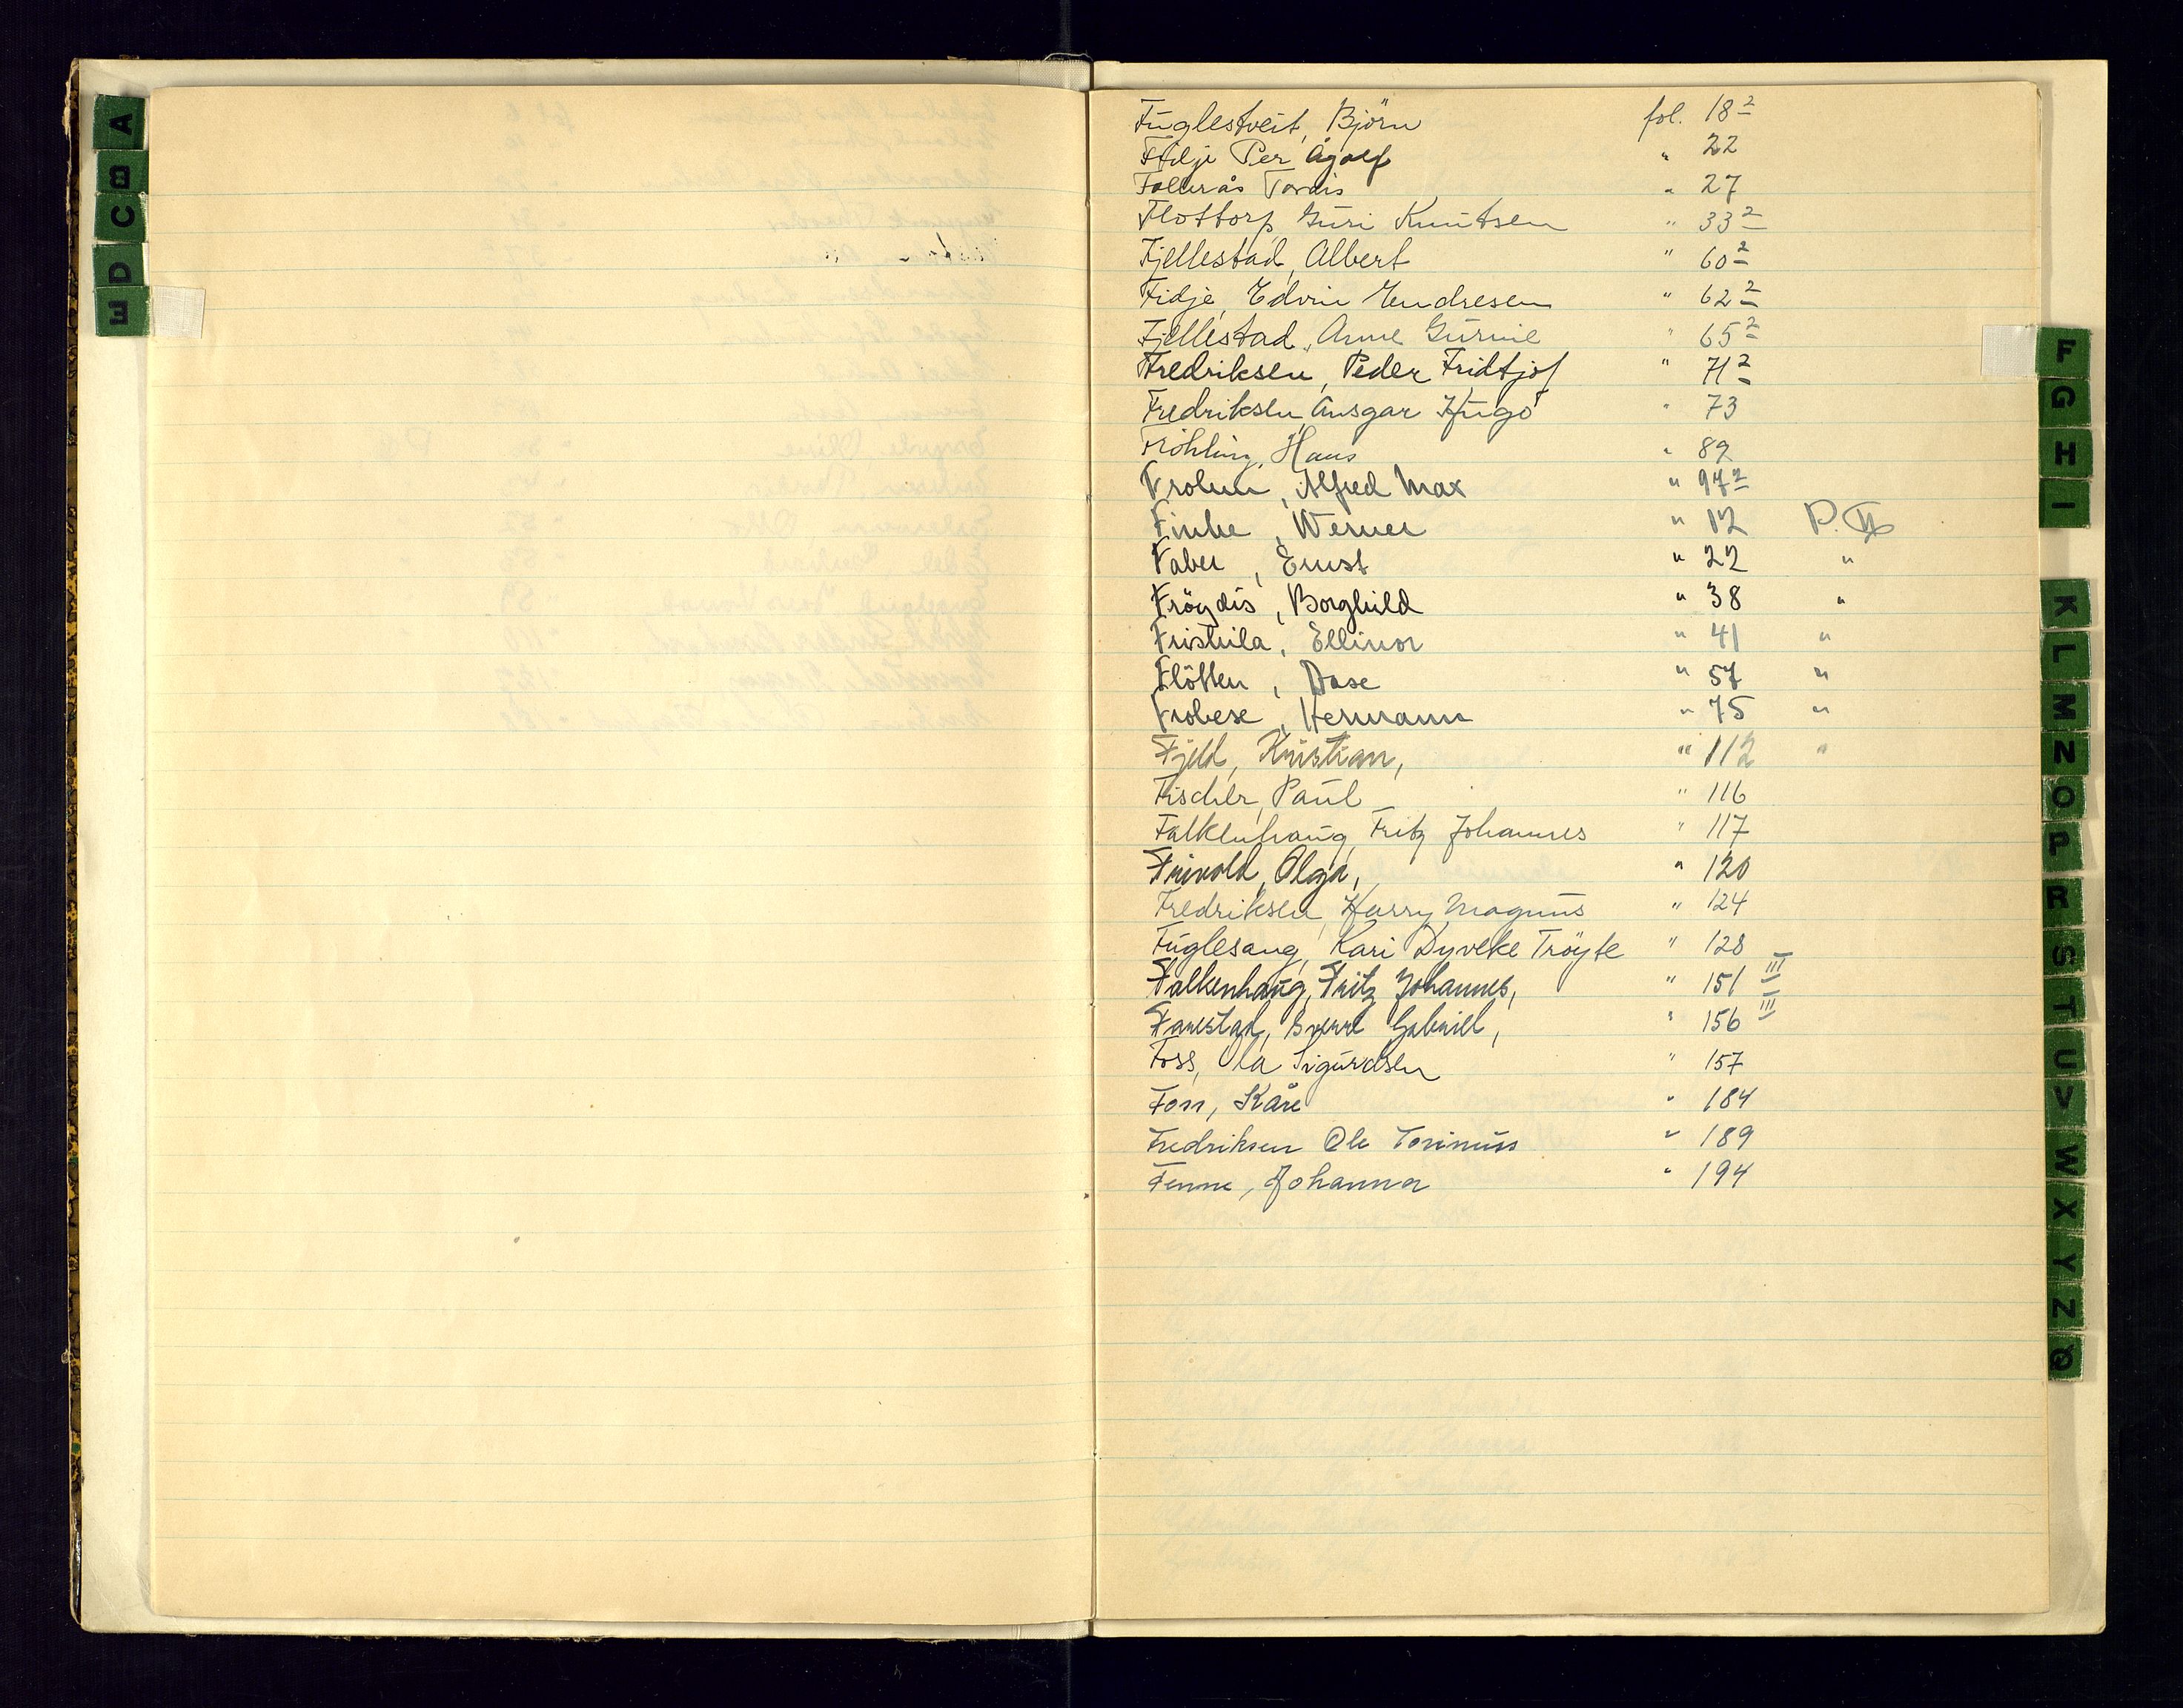 A
B
C
D
E
Fuglestveit, Björn fol. 18 2
Fidje Per Ågolf " 22
Follerås Tordis " 27
Flottorp, Guri Knutsen " 33 2
Fjellestad, Albert " 60 2
Fidje, Edvin Endresen " 62 2
Fjellestad, Anne Gurine " 65 2
Fredriksen, Peder Fridtjof " 71 2
Fredriksen, Ansgar Hugo " 73
Fröhling, Hans " 89
Frohm, Alfred Max " 97 2
Finke, Werner " 12 P. II
Faber, Ernst " 22 "
Fröydis, Borghild " 38 "
Fristula, Ellinor " 41 "
Flötten, Dase " 57 "
Frobese, Hermann " 75 "
Fjeld, Kristian, " 112 "
Fischer, Paul " 116
Falkenhaug, Fritz Johannes " 117
Frivold, Olga, " 120
Fredriksen, Harry Magnus " 124
Fuglesang, Kari Dyveke Tröyte " 128
Falkenhaug, Fritz Johannes, " 151 III
Farestad, Sverre Gabriell, " 156 III
Foss, Ola Sigurdsen " 157
Foss, Kåre " 184
Fredriksen Ole Torinuss " 189
Fenne, Johanna " 194
F
G
H
I
K
L
M
N
O
P
R
S
T
U
V
W
X
Y
Z
Q